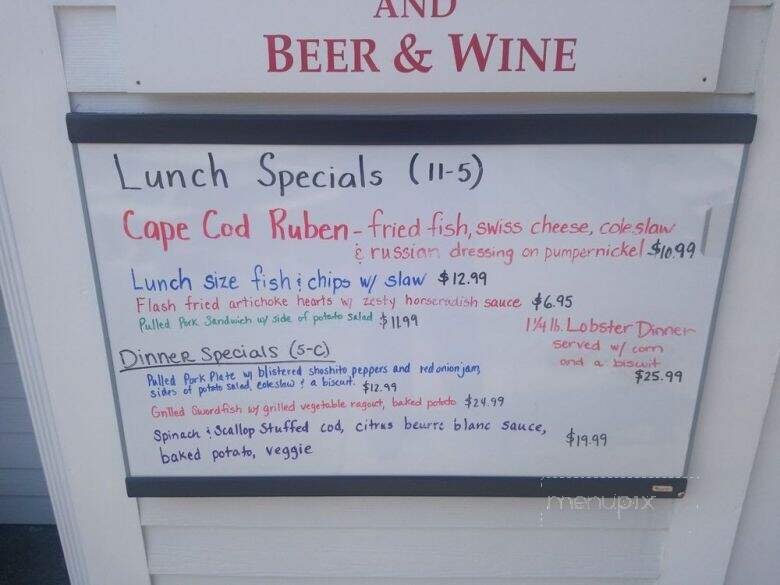 AND
BEER & WINE
Lunch Specials (11-5)
Cape Cod Ruben - fried fish, swiss cheese, coleslaw
& russian dressing on pumpernickel $10.99
Lunch size fish & chips w/ slaw $12.99
Flash fried artichoke hearts w/ zesty horseradish sauce $6.95
Pulled Pork Sandwich w/ side of potato salad $11.99
1 1/4 lb. Lobster Dinner
served w/ corn
and a biscuit
$25.99
Dinner Specials (5-C)
Pulled Pork Plate w/ blistered shoshito peppers and red onion jam,
sides of potato salad, coleslaw & a biscuit. $12.99
Grilled Swordfish w/ grilled vegetable ragout, baked potato $24.99
Spinach & Scallop Stuffed cod, citrus beurre blanc sauce,
baked potato, veggie $19.99
menupix